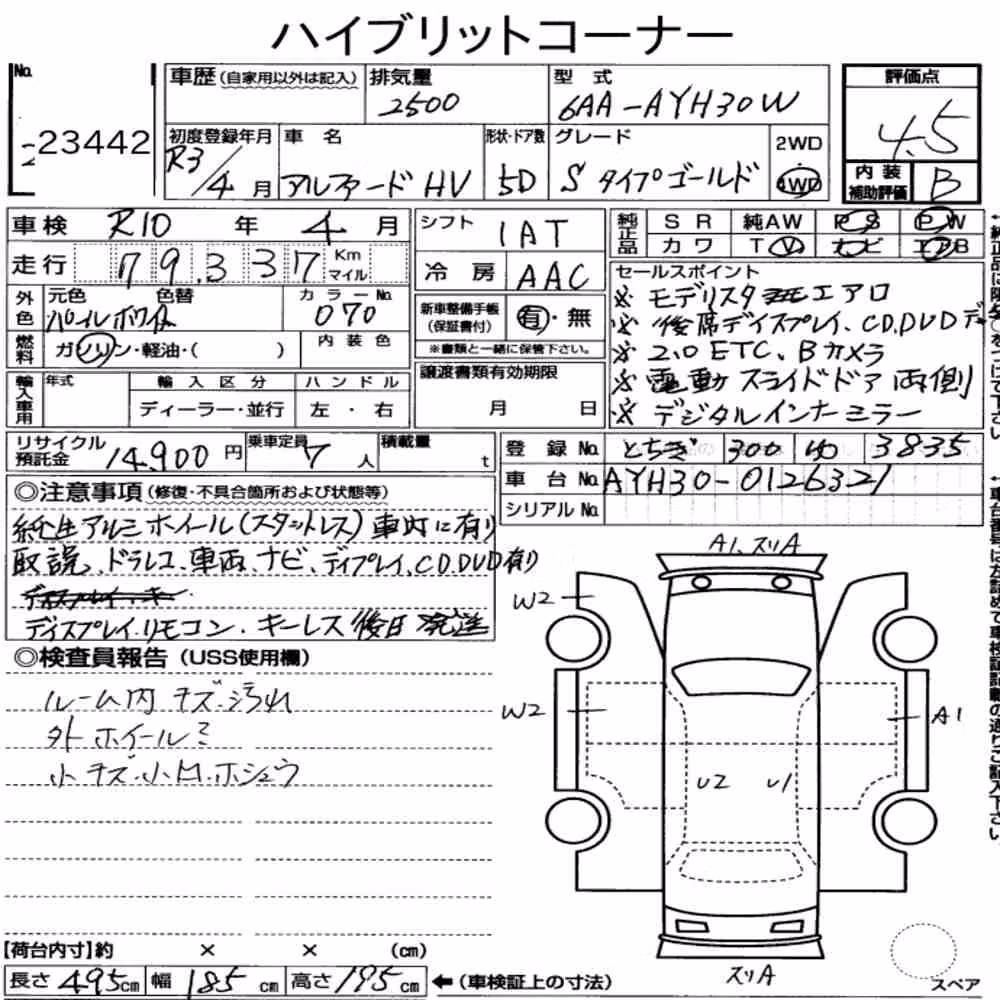 ハイブリットコーナー
No. 23442
車歴(自家用以外は記入) 排気量 2500 型式 6AA-AYH30W 評価点 4.5
初度登録年月 R3/4月 車名 アルファード HV 形状・ドア数 5D グレード S タイプゴールド 2WD・4WD
内装補助評価 B
車検 R10年 4月 シフト IAT 純正品 SR 純AW PS PW
走行 79,337 Km マイル 冷房 AAC カワ TV ナビ エアB
外色 元色 パールホワイト 色替 カラーNo. 070 新車整備手帳(保証書付) 有・無
※書類と一緒に保管下さい。
燃料 ガソリン・軽油・( ) 内装色
セールスポイント
※ モデリスタ エアロ
※ 後席ディスプレイ、CD,DVDデ
※ 2.0 ETC、Bカメラ
※ 電動スライドドア両側
※ デジタルインナーミラー
輸入車用 年式 輸入区分 ハンドル 譲渡書類有効期限
ディーラー・並行 左・右 月 日
リサイクル預託金 14,900円 乗車定員 7人 積載量 t
登録No. とちぎ 300 3835
車台No. AYH30-0126321
シリアルNo.
◎注意事項(修復・不具合箇所および状態等)
純生アルミホイール(スタットレス)車内に有り
取説、ドラレコ、車両、ナビ、ディプレイ、CD,DVD有り
ディスプレイ、キー
ディスプレイ、リモコン、キーレス後日発送
◎検査員報告(USS使用欄)
ルーム内キズ・汚れ
外ホイールミ
小キズ・小凹・ホシュウ
A1、スリA
W2
W2
A1
U2 U1
スリA
スペア
【荷台内寸】約 × × (cm)
長さ 495cm 幅 185cm 高さ 195cm ←(車検証上の寸法)